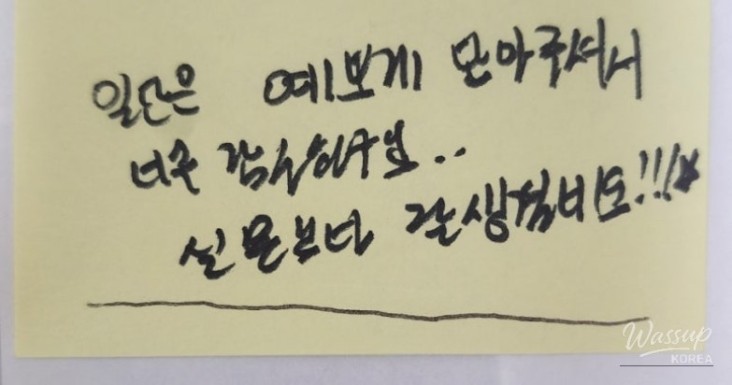 일단은 예쁘게 봐주셔서
너무 감사하구요..
실물보다 잘생겼네요!!!
Wassup
KOREA